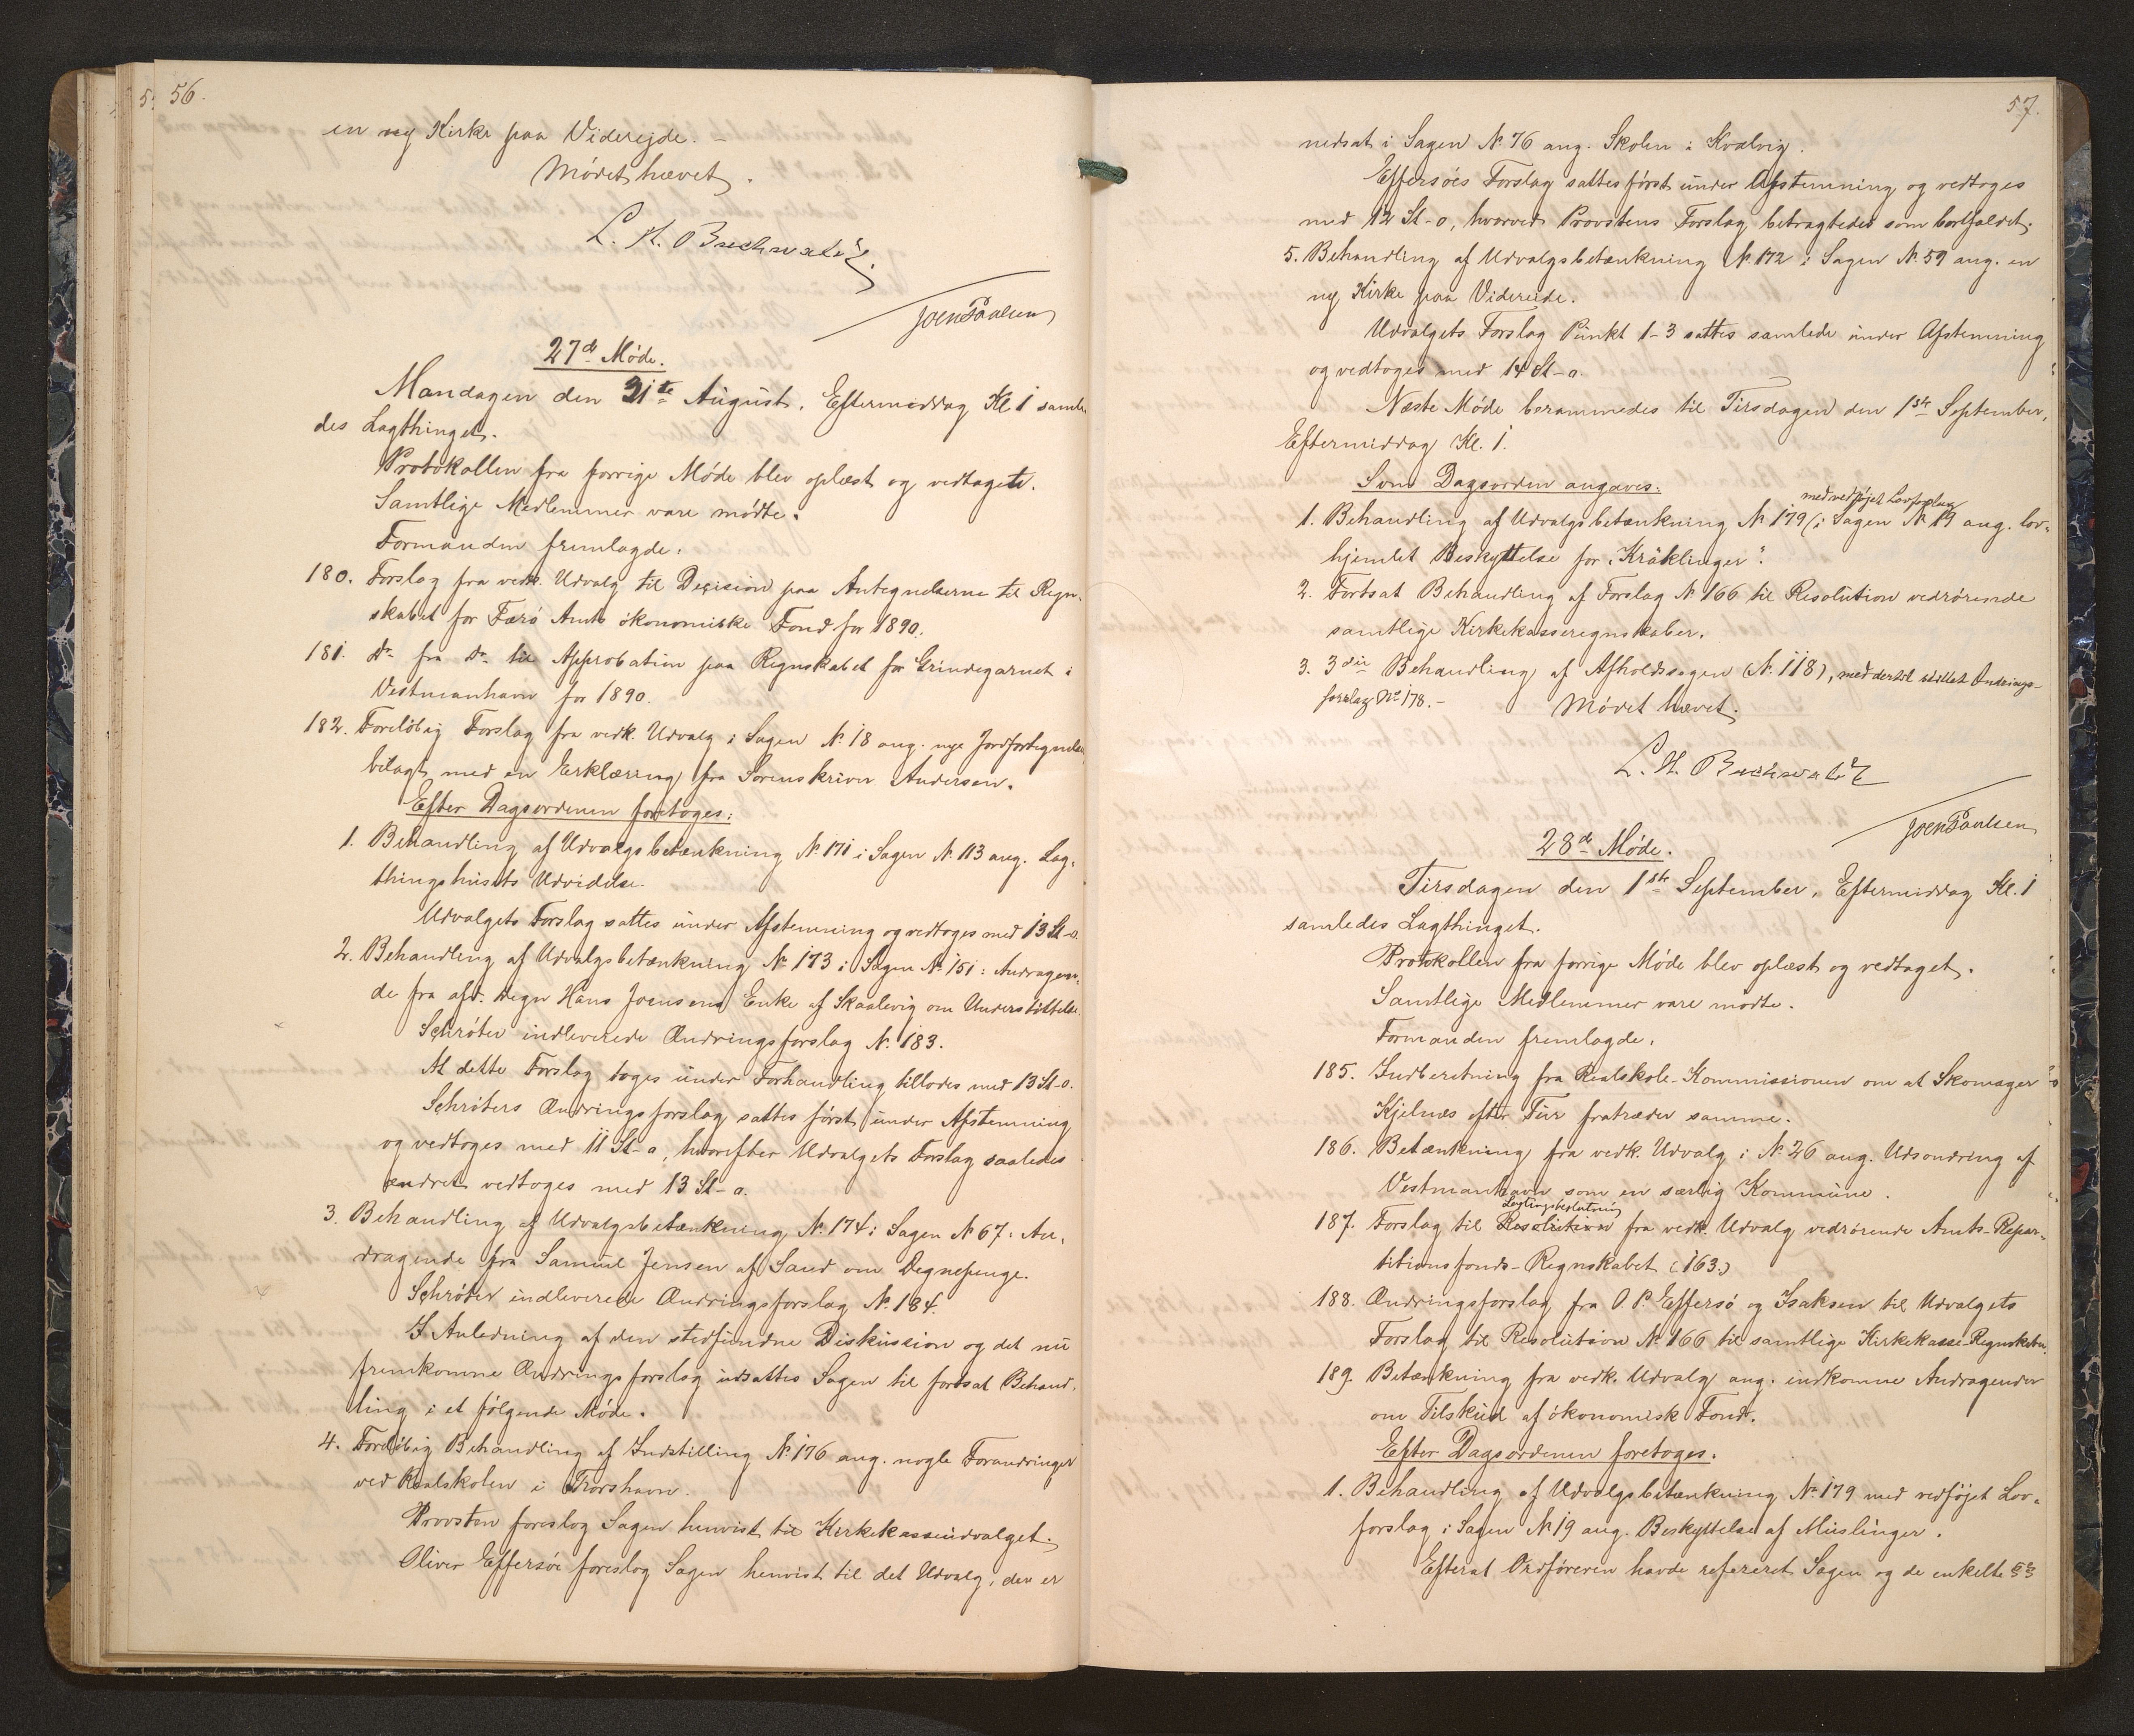 56.
en ny Kirke paa Viderejde. –
Mødet hævet.
L. H. Buchwaldt
Joen Poulsen
27de Møde.
Mandagen den 31te August, Eftermiddag Kl 1 samle-
des Lagthinget.
Protokollen fra forrige Møde blev oplæst og vedtaget.
Samtlige Medlemmer vare mødte.
Formanden fremlagde:
180. Forslag fra vedk. Udvalg til Decision paa Antegnelserne til Regn-
skabet for Færø Amts økonomiske Fond for 1890.
181. Do fra Do til Approbation paa Regnskabet for Grindegarnet i
Vestmanhavn for 1890.
182. Foreløbig Forslag fra vedk. Udvalg i Sagen No 18 ang. nye Jordfortegnelse,
bilagt med en Erklæring fra Sorenskriver Andersen.
Efter Dagsordenen foretoges:
1. Behandling af Udvalgsbetænkning No 171 i Sagen No 113 ang. Lag-
thingshusets Udvidelse.
Udvalgets Forslag sattes under Afstemning og vedtoges med 13 St–o.
2. Behandling af Udvalgsbetænkning No 173 i Sagen No 151: Andragen-
de fra afd. Degn Hans Joensens Enke af Skaalevig om Understøttelse.
Schrøter indleverede Ændringsforslag No 183.
At dette Forslag toges under Forhandling tillodes med 13 St–o.
Schrøters Ændringsforslag sattes først under Afstemning
og vedtoges med 11 St–o, hvorefter Udvalgets Forslag saaledes
ændret vedtoges med 13 St–o.
3. Behandling af Udvalgsbetænkning No 174 i Sagen No 67: An-
dragende fra Samuel Jensen af Sand om Degnepenge.
Schrøter indleverede Ændringsforslag No 184.
I Anledning af den stedfundne Diskussion og det nu
fremkomne Ændringsforslag udsattes Sagen til fortsat Behand-
ling i et følgende Møde.
4. Foreløbig Behandling af Indstilling No 176 ang. nogle Forandringer
ved Realskolen i Thorshavn.
Provsten foreslog Sagen henvist til Kirkekasseudvalget.
Oliver Effersøe foreslog Sagen henvist til det Udvalg, der er
57.
nedsat i Sagen No 76 ang. Skolen i Kvalvig.
Effersøes Forslag sattes først under Afstemning og vedtoges
med 12 St–o, hvorved Provstens Forslag betragtedes som bortfaldet.
5. Behandling af Udvalgsbetænkning No 172 i Sagen No 59 ang. en
ny Kirke paa Videreide.
Udvalgets Forslag Punkt 1–3 sattes samlede under Afstemning
og vedtoges med 14 St–o.
Næste Møde berammedes til Tirsdagen den 1ste September,
Eftermiddag Kl. 1.
Som Dagsorden angaves:
med vedføjet Lovforslag
1. Behandling af Udvalgsbetænkning No 179 (i Sagen No 19 ang. lov-
hjemlet Beskyttelse for "Kräklinger".
2. Fortsat Behandling af Forslag No 166 til Resolution vedrørende
samtlige Kirkekasseregnskaber.
3. 3die Behandling af Afholdssagen (No 118), med dertil stillet Ændrings-
forslag No 178. –
Mødet hævet.
L. H. Buchwaldt
Joen Poulsen
28de Møde.
Tirsdagen den 1ste September, Eftermiddag Kl. 1
samledes Lagthinget.
Protokollen fra forrige Møde blev oplæst og vedtaget.
Samtlige Medlemmer vare mødte.
Formanden fremlagde:
185. Indberetning fra Realskole-Kommissionen om at Skomager
Kjelnæs efter Tur fratræder samme.
186. Betænkning fra vedk. Udvalg i No 26 ang. Udsondring af
Vestmanhavn som en særlig Kommune.
Lagtingsbeslutning
187. Forslag til Resolution fra vedk. Udvalg vedrørende Amts-Repar-
titionsfonds-Regnskabet (163.)
188. Ændringsforslag fra O. P. Effersø og Isaksen til Udvalgets
Forslag til Resolution No 166 til samtlige Kirkekasse-Regnskaber.
189. Betænkning fra vedk. Udvalg ang. indkomne Andragender
om Tilskud af økonomisk Fond.
Efter Dagsordenen foretoges:
1. Behandling af Udvalgsbetænkning No 179 med vedføjet Lov-
forslag i Sagen No 19 ang. Beskyttelse af Muslinger.
Efterat Ordføreren havde refereret Sagen og de enkelte §§